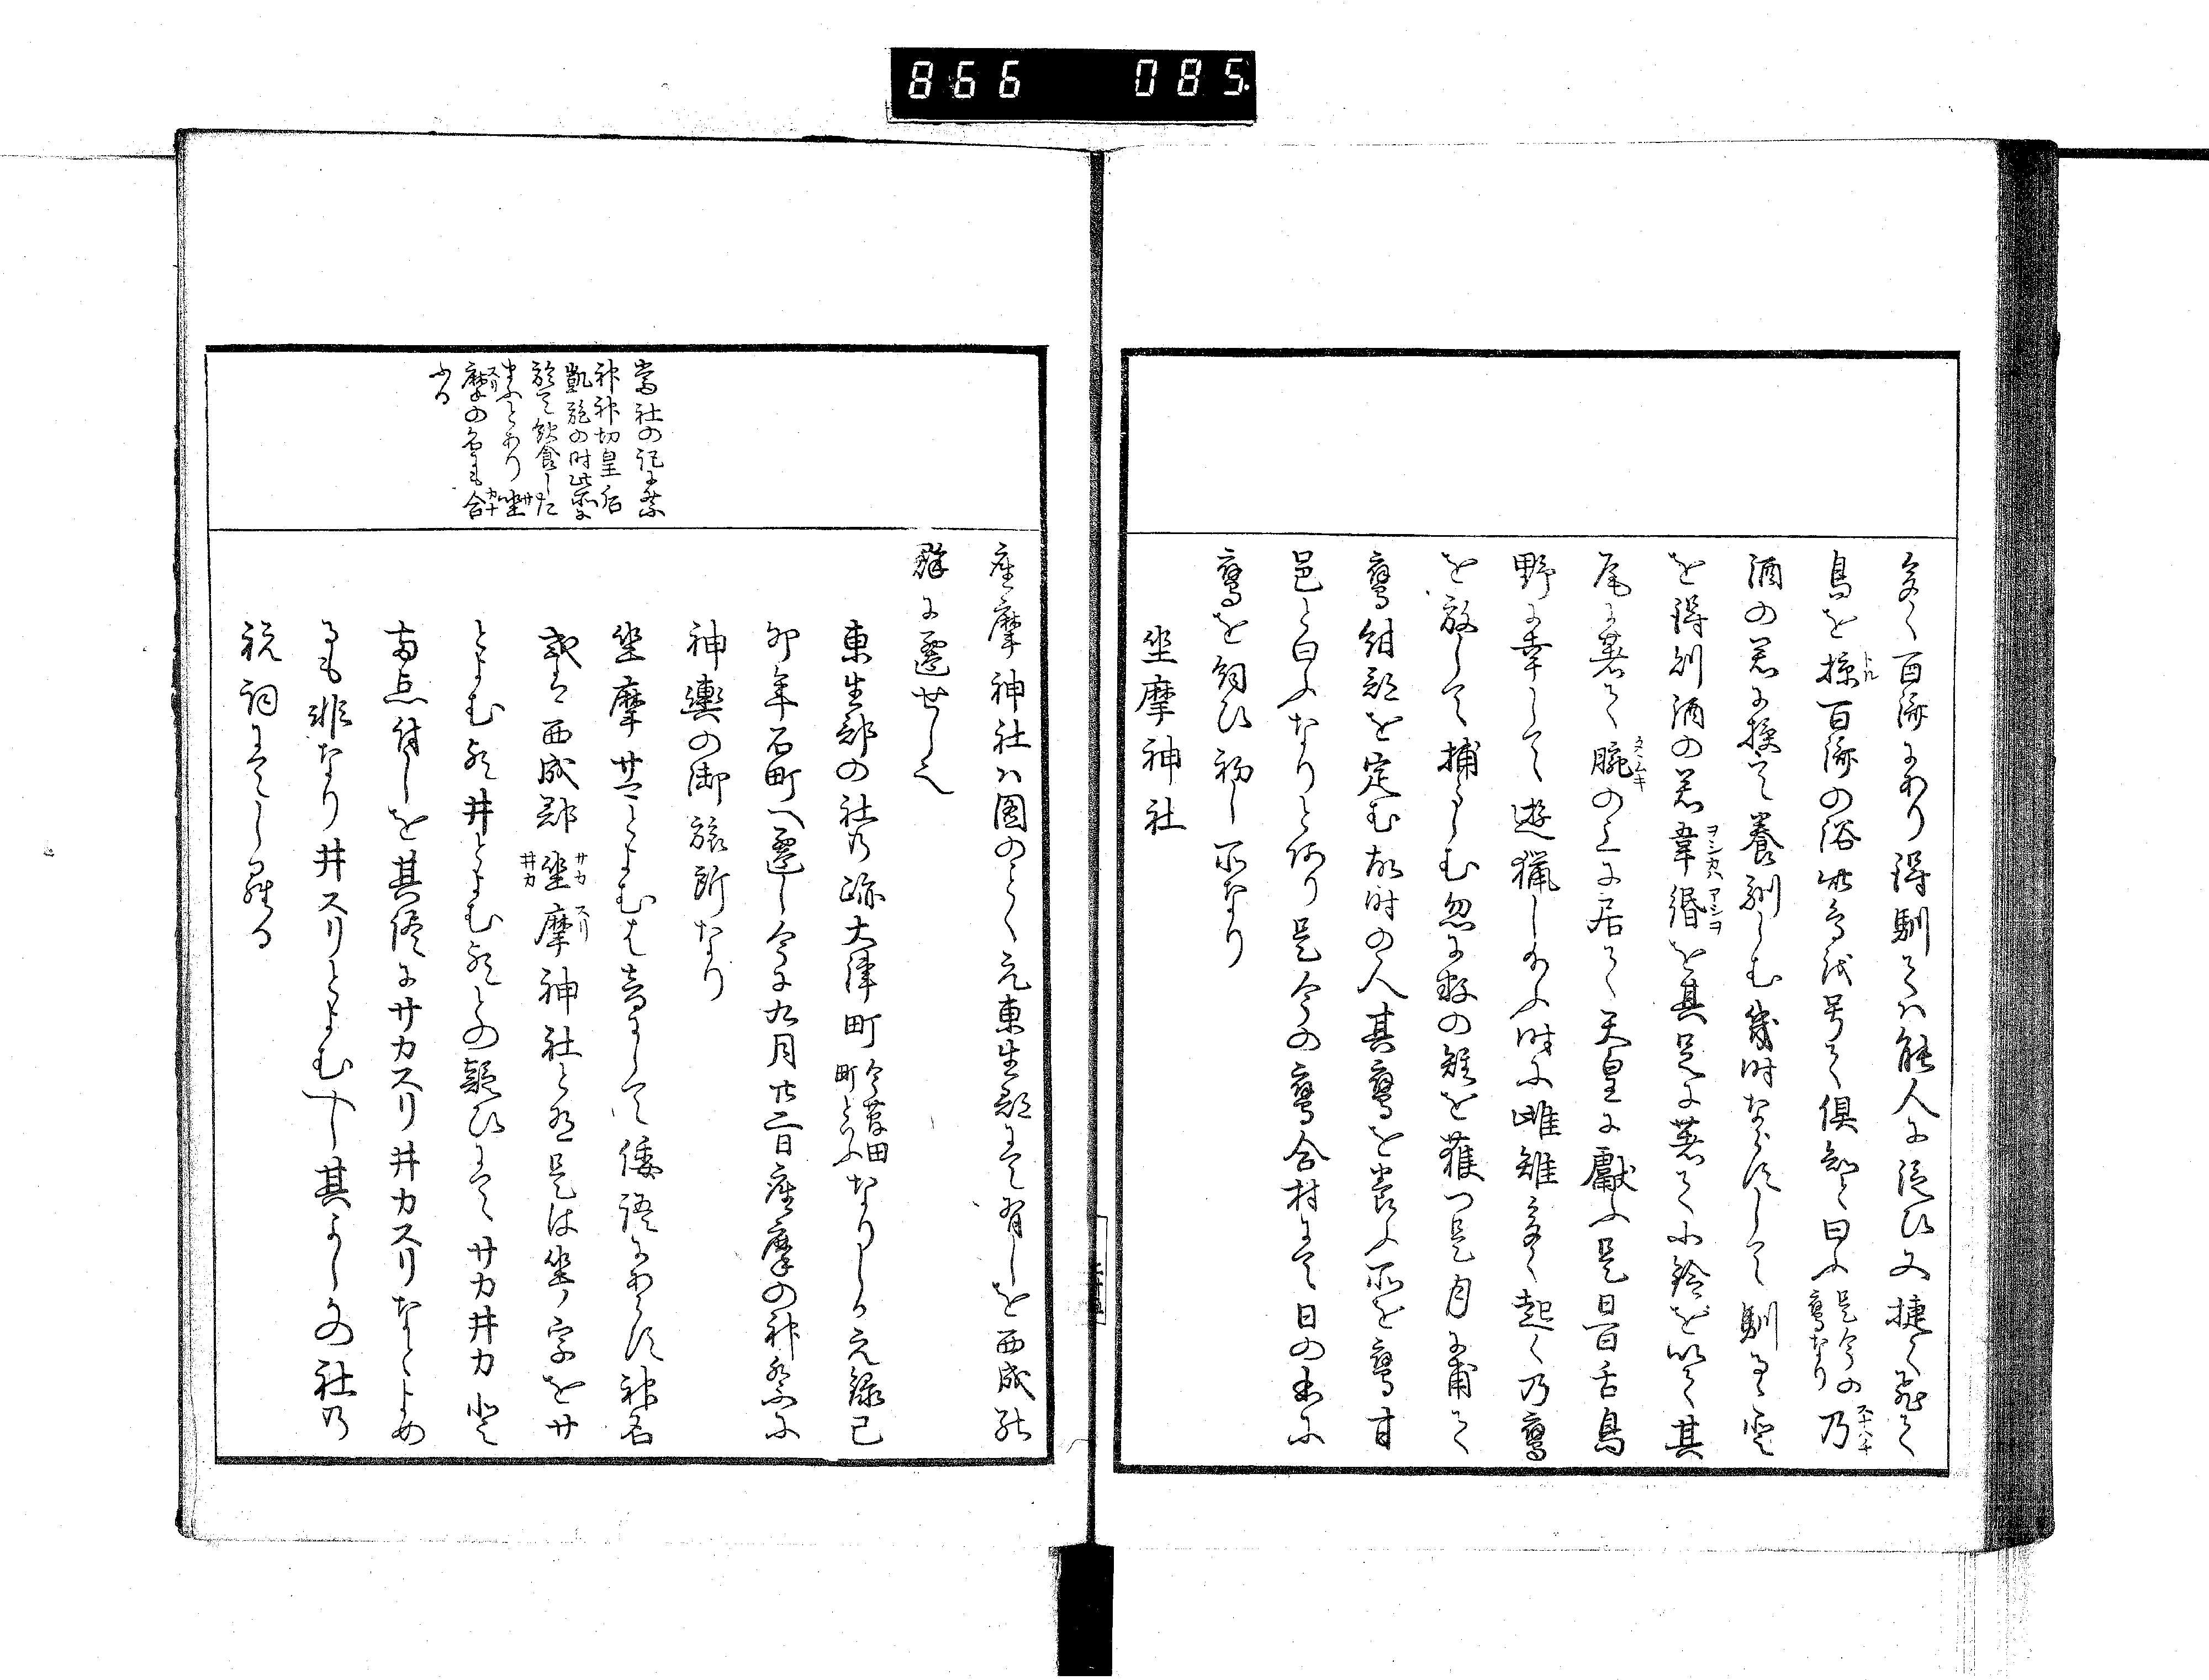 866 085
多く百済にあり得馴てハ能人に従ひ又捷く飛て
鳥を掠百済の俗此鳥を号て倶知と曰ふ是今の鷹なり乃
酒の君に授て養馴しむ幾時ならすして馴る
を得則酒の君韋緡を其足に著て小鈴を以て其
尾に著て腕の上に居て天皇に献ふ是日百舌鳥
野に幸して遊猟し給ふ時に雌雉多く起く乃鷹
を放して捕らしむ忽に数の雉を獲つ是月に甫て
鷹甘部を定む故時の人其鷹を養ふ所を鷹甘
邑と曰ふなりと有り是今の鷹合村にて日の本に
鷹を飼ひ初し所なり
坐摩神社
座摩神社ハ図のことく元東生郡にて有しを西成
郡に遷せしと
東生郡の社乃跡大津町なりしか元禄己
卯年石町へ遷し今に九月廿二日座摩の神祭に
神輿の御旅所なり
坐摩サマとよむは音にして倭語にあらす神名
式に西成郡坐摩神社と有是は坐ノ字をサ
とよむ歟井とよむ歟との疑ひにてサカ井カと
両点付しを其侭にサカスリ井カスリなとよめ
るも非なり井スリとよむへし其よしの社乃
祝詞にてしらる
当社の記に祭
神神功皇后
凱旋の時此所に
於て飲食した
まふとあり坐
摩の名にも合
ふる